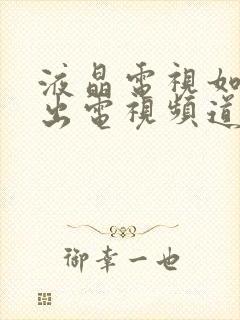 液晶電視如
出電視頻道
御幸一也